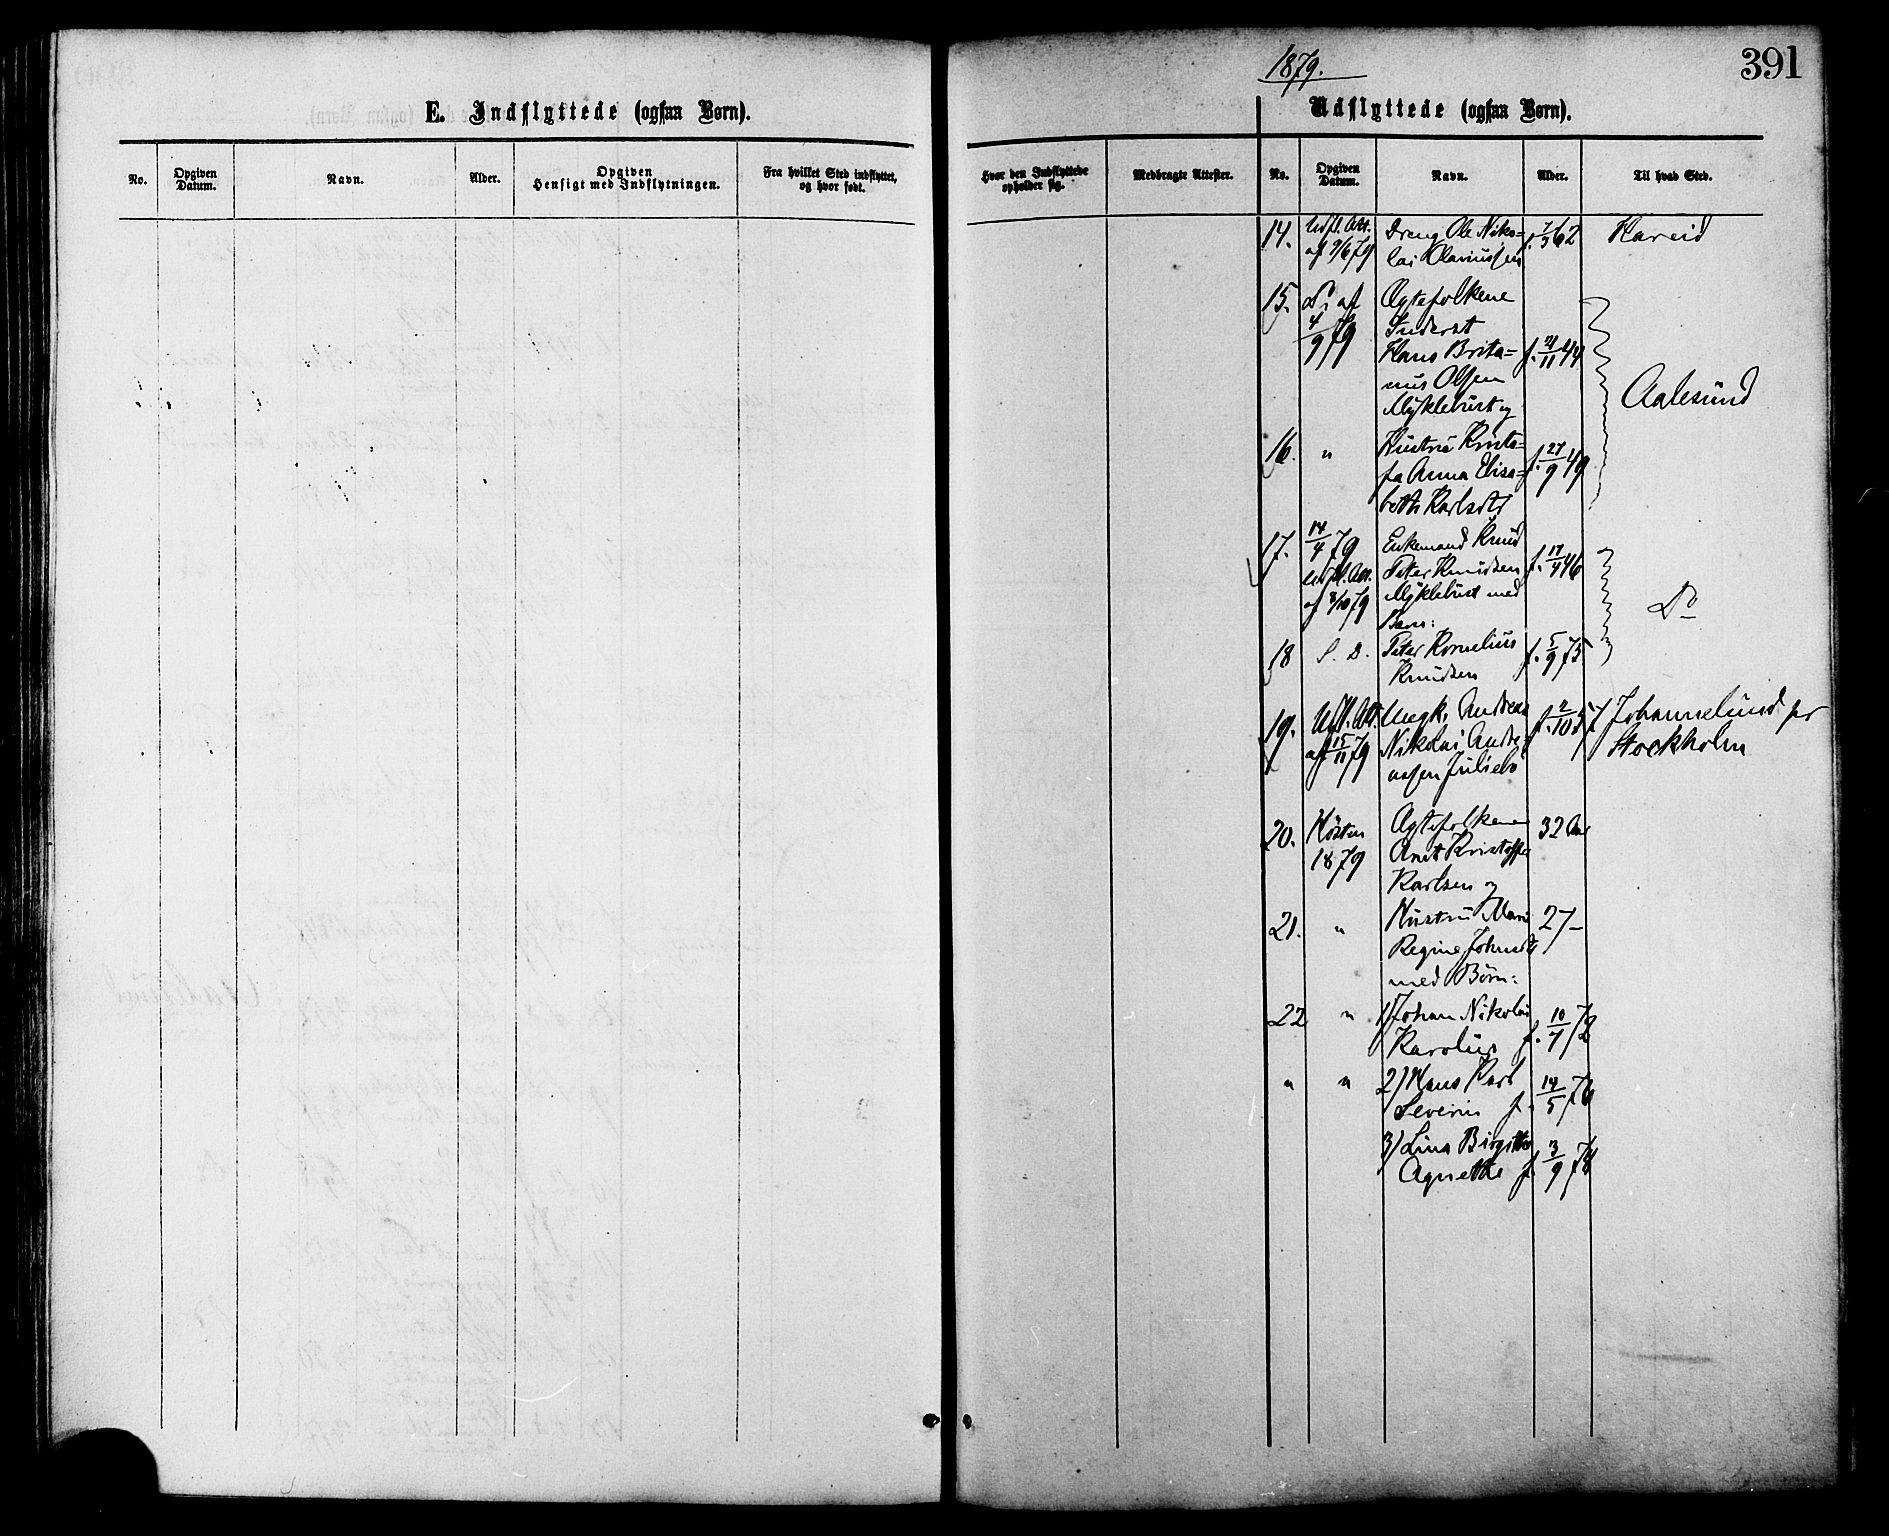 E. Indflyttede (ogsaa Børn).
No.
Opgiven
Datum.
Navn.
Alder.
Opgiven
Hensigt med Indflytningen.
Fra hvilket Sted indflyttet,
og hvor født.
1879.
391
Udflyttede (ogsaa Børn).
Hvor den Indflyttede
opholder sig.
Medbragte Attester.
No.
Opgiven
Datum.
Navn.
Alder.
Til hvad Sted.
14. Udfl. Att. Dreng Ole Niko= f. 7/3 62 Hareid
af 9/6 79 lai Klaniussen
15. Do af Ægtefolkene
4/9 79 Inderst
Hans Brita= f. 21/11 44
nus Olsen Aalesund
Myklebust og
16. " Hustru Krista= f. 27/9 49
fa Anna Elisa=
beth Karlsdtr
17. 14/4 79 Enkemand Knud f. 17/4 46
Udfl. Att. Peter Knudsen
af 8/10 79 Myklebust med Do
Barn:
18 S. D. Peter Kornelius f. 5/9 75
Knudsen
19. Udfl. Att. Ungk. Andreas f. 2/10 57 Johannelund pr
af 15/11 79 Nikolai Andre= Stockholm
assen Juliebø
20. Høsten Ægtefolkene 32 Aar
1879 Anet Kristoffer
Karlsen og
21. " Hustru Marie 27 –
Regine Johnsdtr
med Børn:
22 " 1) Johan Nikolai
Karolius f. 10/7 72
" " 2) Hans Karl
Severin f. 14/5 76
3) Lina Birgitte
Agnethe f. 3/9 78